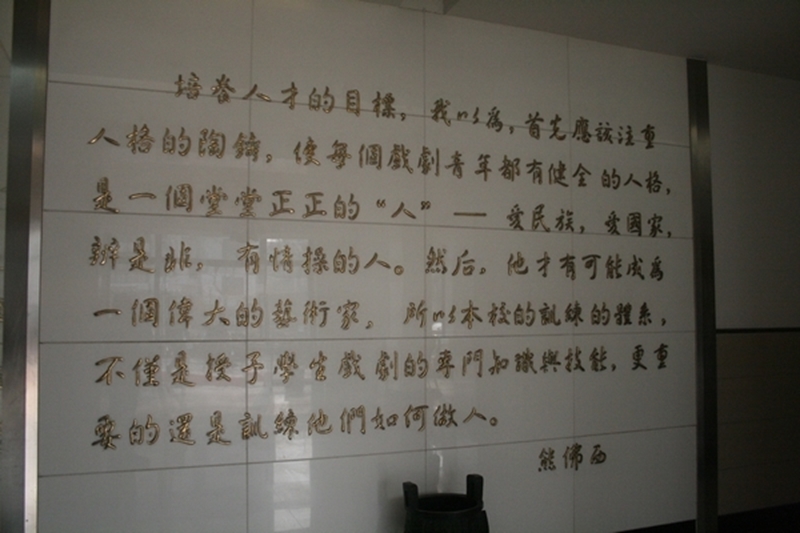 培養人才的目標，我以為，首先應該注重
人格的陶鑄，使每個戲劇青年都有健全的人格，
是一個堂堂正正的“人”——愛民族，愛國家，
辨是非，有情操的人。然后，他才有可能成為
一個偉大的藝術家，所以本校的訓練的體系，
不僅是授予學生戲劇的專門知識與技能，更重
要的還是訓練他們如何做人。
熊佛西